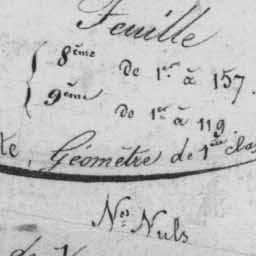 Feuille
8ème
de 1er à 157.
9ème
de 1er à 119.
Géomètre de 1ère clas
Nos Nuls